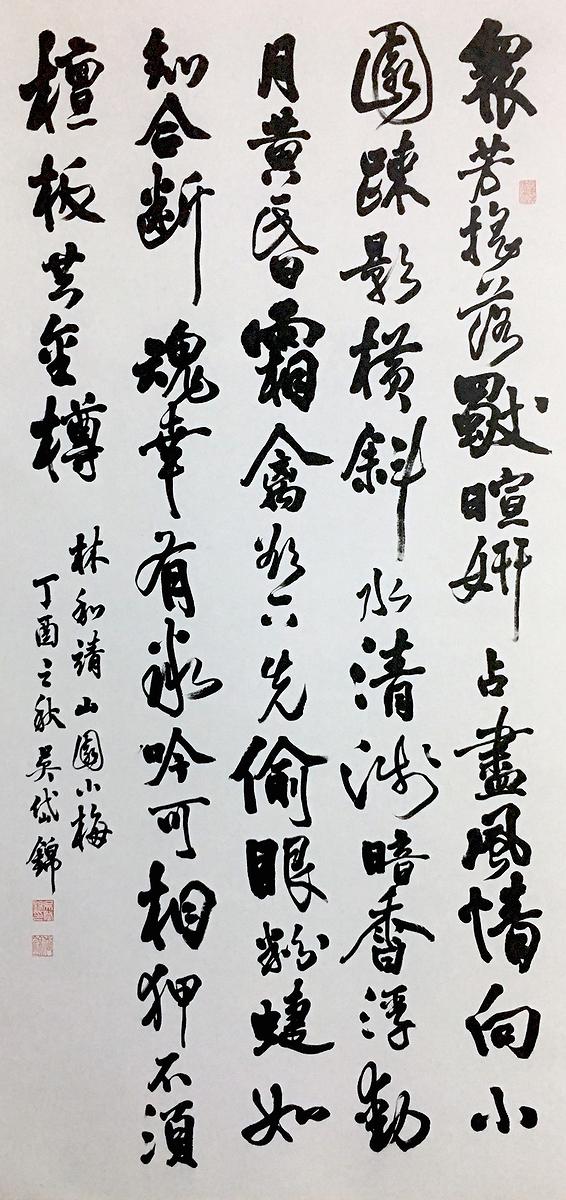 眾芳搖落獨暄妍占盡風情向小
園踈影橫斜水清淺暗香浮動
月黃昏霜禽欲下先偷眼粉蝶如
知合斷魂幸有微吟可相狎不須
檀板共金樽
林和靖山園小梅
丁酉之秋吳岱錦